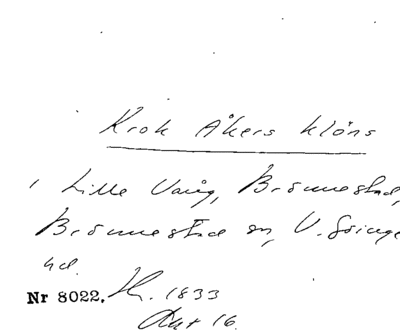 Krok Åkers klöns
i Lille Vång, Brönnestad,
Brönnestad sn, V. Göinge
hd.
Nr 8022. 1833
Akt 16.